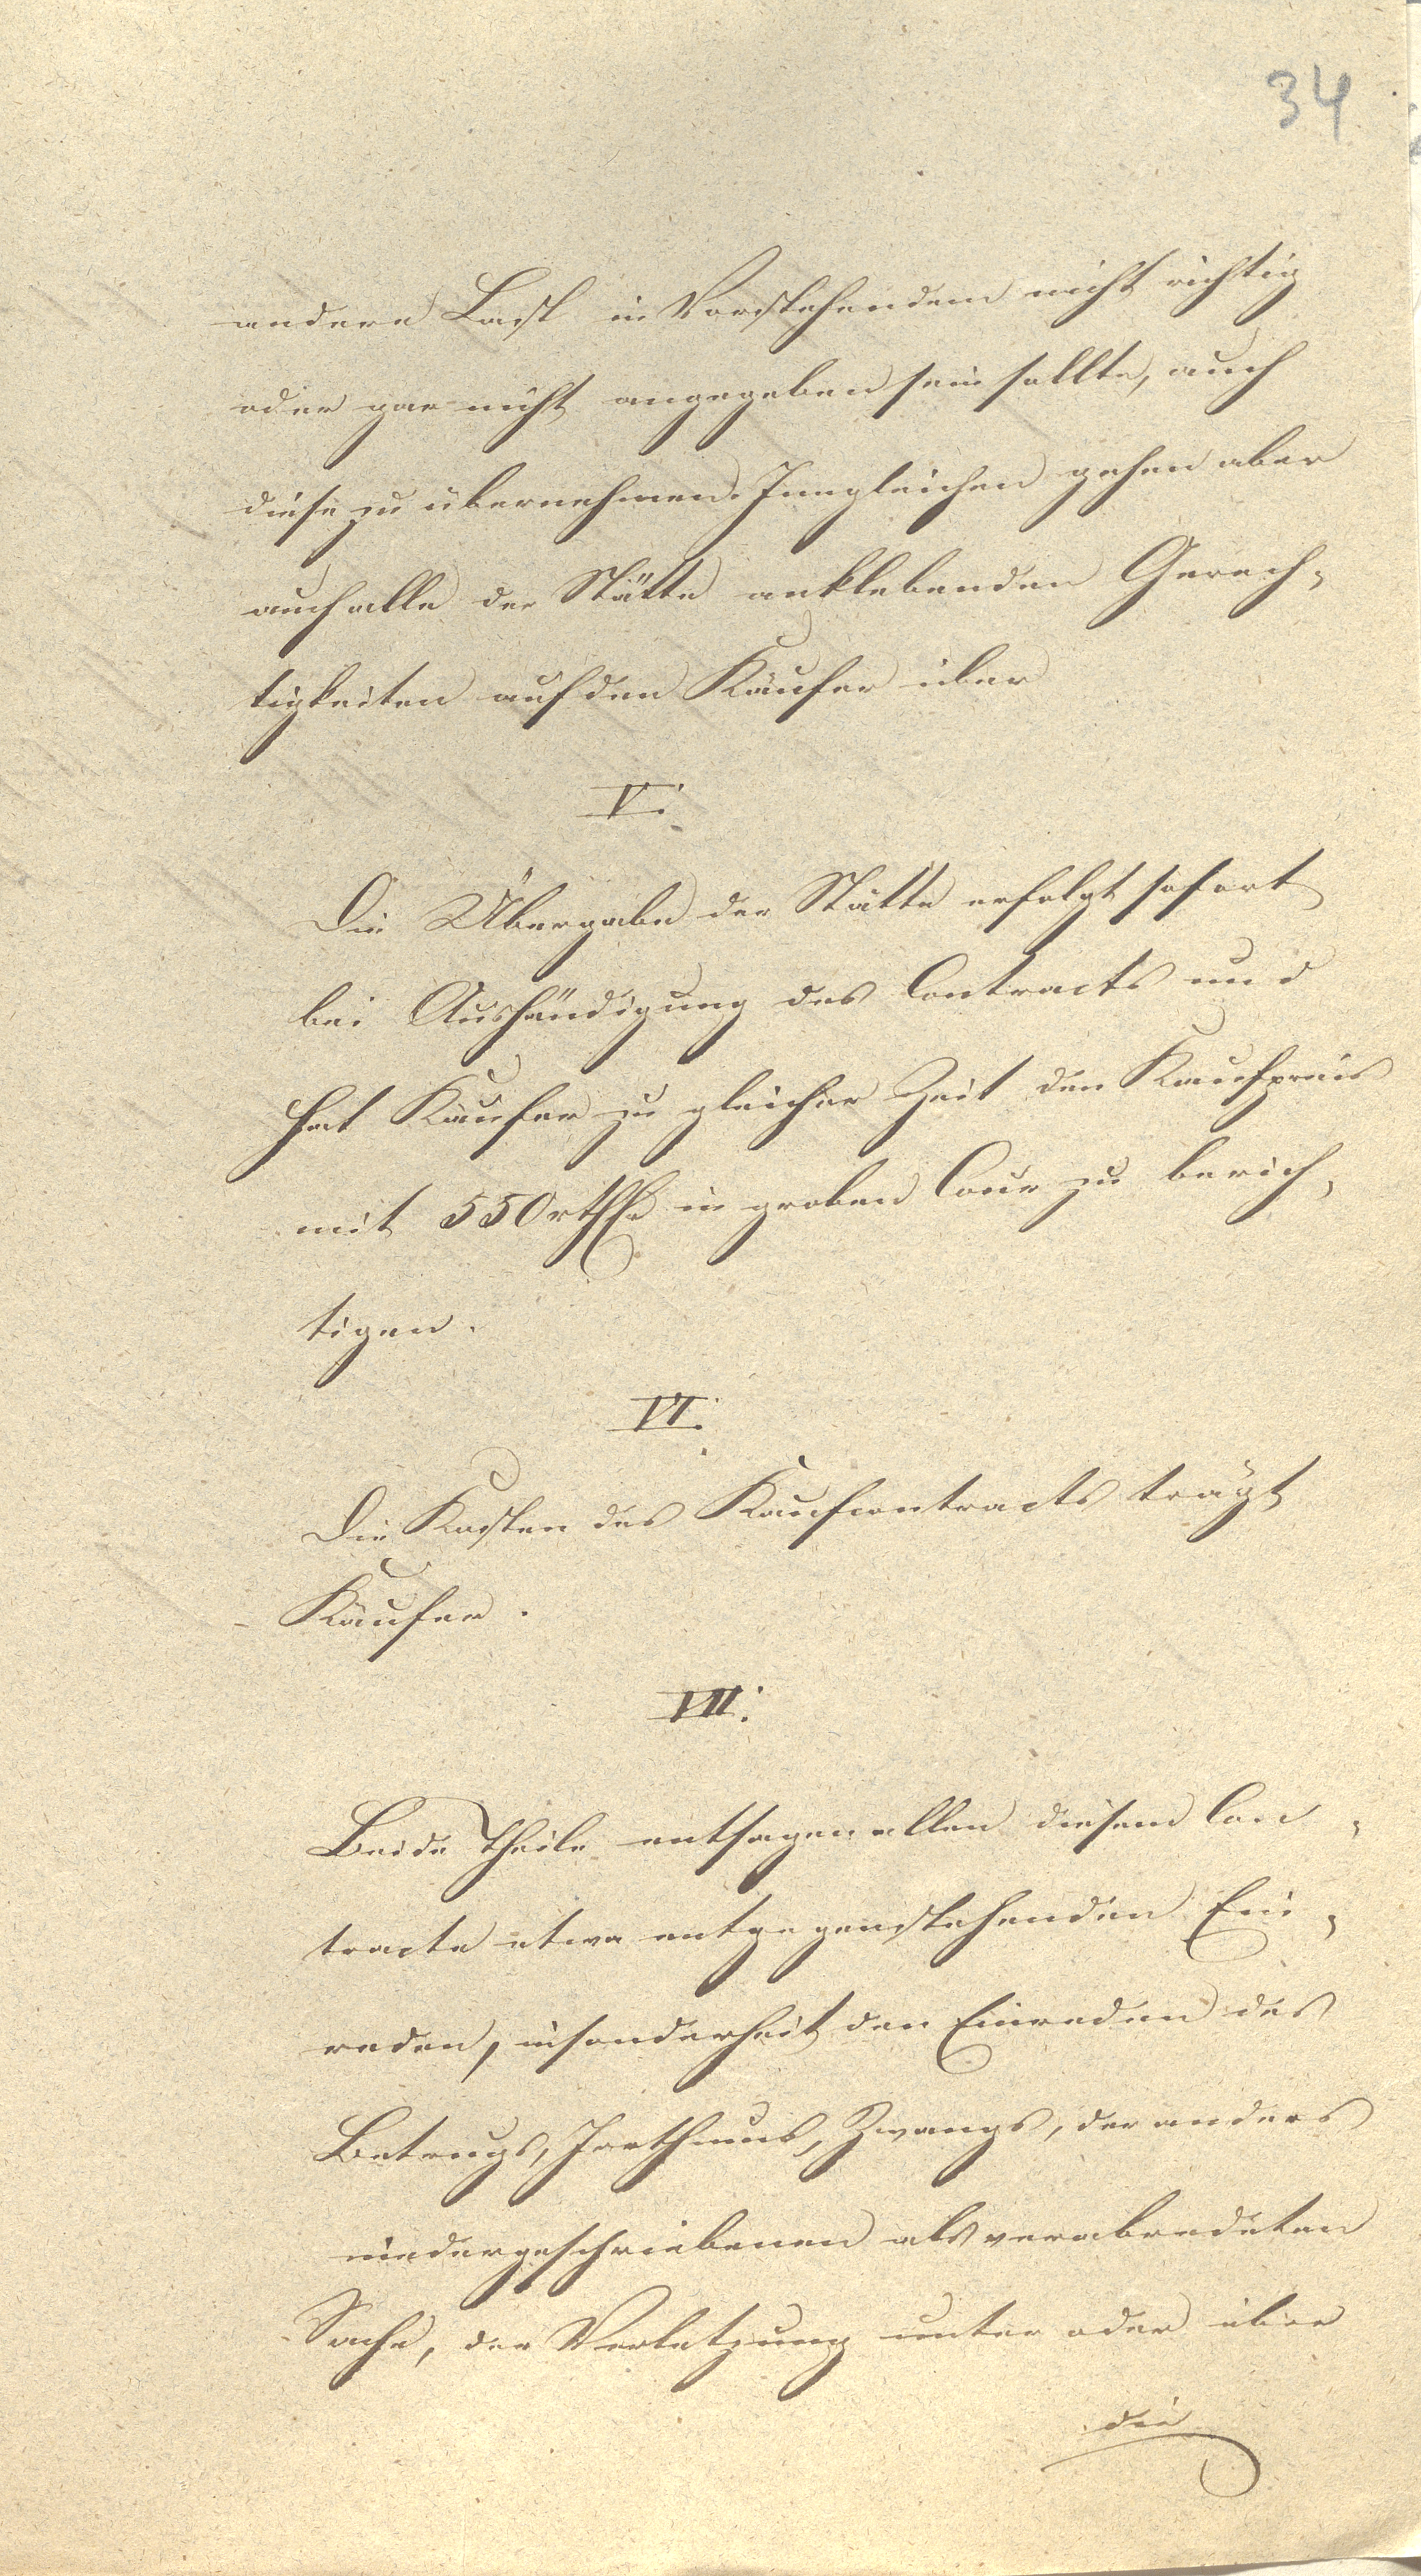 34
andere Last in Vorstehendem nicht richtig
oder gar nicht angegeben sein sollte, auch
diese zu übernehmen. Imgleichen gehen aber
auch alle der Stätte anklebenden Gerech-
tigkeiten auf den Käufer über
V.
Die Übergabe der Stätte erfolgt sofort
bei Aushändigung des Contracts und
hat Käufer zu gleicher Zeit den Kaufpreis
mit 550 rthlr in groben Cour zu berich-
tigen.
VI.
Die Kosten des Kaufcontracts trägt
Käufer.
VII.
Beide Theile entsagen allen diesem Con-
tracte etwa entgegenstehenden Ein-
reden, insonderheit den Einreden des
Betrugs, Irrthums, Zwangs, der anders
niedergeschriebenen als verabredeten
Sache, der Verletzung unter oder über
die